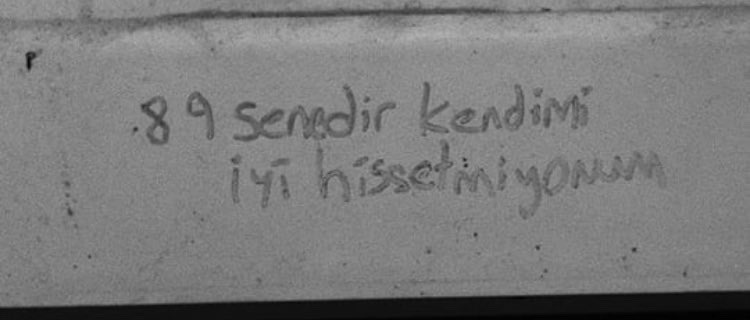 89 senedir kendimi
iyi hissetmiyorum